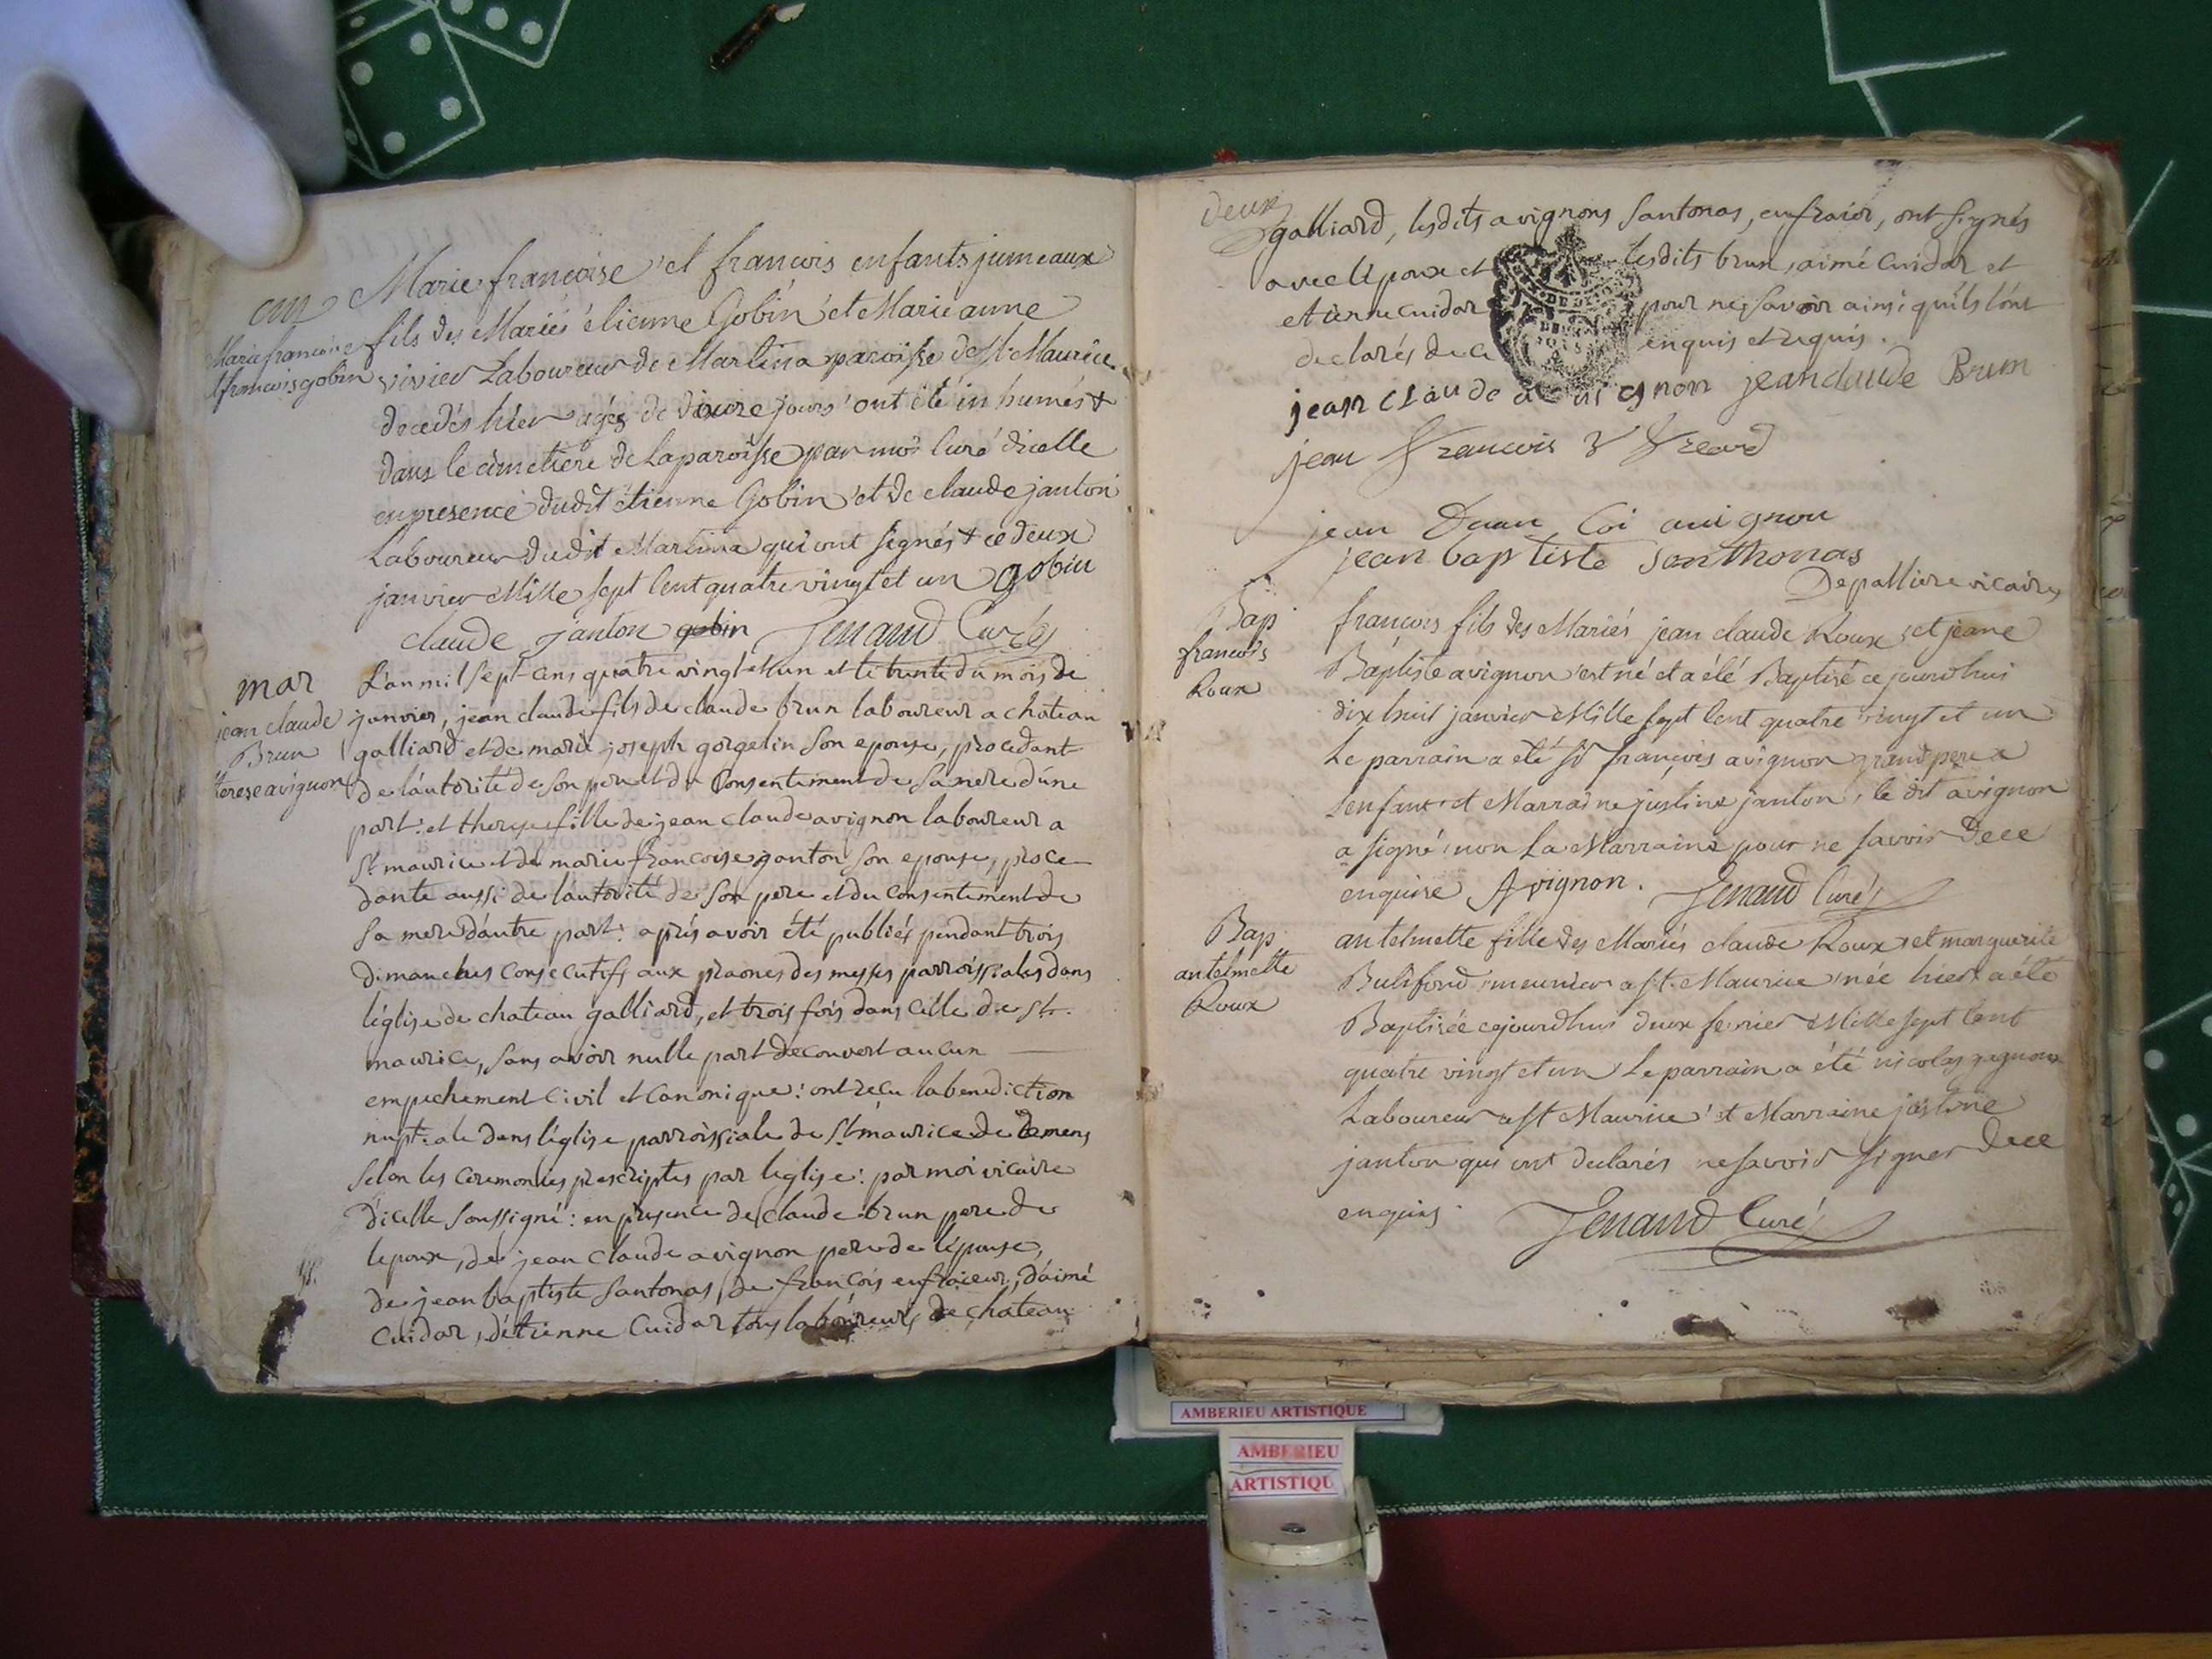 Marie francoise et francois enfants jumeaux
fils des Mariés étienne Gobin et Marie anne
Marie francoise
et francois gobin
vivier Laboureur de Martina paroisse de St Maurice
decedés hier agés de douze jours ont été inhumés +
dans le cimetiere de La paroisse par moi Curé dicelle
en presence dudit étienne Gobin et de claude janton
Laboureur dudit Martina qui ont signés + ce deux
janvier Mille sept Cent quatre vingt et un gobin
claude janton gobin Jenand Curé
mar
jean claude
Brun
terese avignon
L'an mil sept cens quatre vingt et un et le trente du mois de
janvier, jean claude fils de claude brun laboureur a chateau
galliard et de marie joseph gorgelin son epouse, procedant
de l'autorité de son pere et du Consentement de sa mere d'une
part: et therese fille de jean claude avignon laboureur a
St maurice et de marie francoise janton son epouse, proce
dante aussi de l'autorité de son pere et du Consentement de
sa mere d'autre part: après avoir été publiés pendant trois
dimanches Consecutifs aux praones des messes parroissiales dans
l'église de chateau galliard, et trois fois dans Celle de St.
maurice, sans avoir nulle part decouvert aucun
empechement Civil et Canonique: ont reçu la benediction
nuptiale dans l'église parroissiale de St maurice de Remens
selon les Ceremonies prescriptes par leglise: par moi vicaire
dicelle soussigné: en presence de Claude brun pere de
lepoux, de jean claude avignon pere de l'épouse,
de jean baptiste santonas, de françois enfraieur, d'aimé
Cuidar, d'étienne Cuidar tous laboureurs de chateau
deux
galliard, lesdits avignons santonas, enfraior, ont signés
avec l'époux et lesdits brun, aimé Cuidar et
etienne Cuidar pour ne savoir ainsi qu'ils l'ont
declarés de ce enquis et requis.
jean claude avignon jean claude Brun
jean francois
jean avignon
jean baptiste Santhonas
Depalliere vicaire
Bap
francois
Roux
francois fils des Mariés jean claude Roux et jeane
Baptiste avignon est né et a été Baptisé ce jourdhui
dix huit janvier Mille sept Cent quatre vingt et un
Le parrain a été sr françois avignon grand pere a
lenfant et Marraine justine janton, le dit avignon
a signé non La Marraine pour ne savoir De ce
enquise Avignon. Jenand Curé
Bap
antelmette
Roux
antelmette fille des Mariés claude Roux et marguerite
Bulifond meunier a St. Maurice née hier a été
Baptisée cejourdhui deux fevrier Mille sept Cent
quatre vingt et un Le parrain a été nicolas
Laboureur a St Maurice et Marraine justine
janton qui ont declarés ne savoir signer De ce
enquis. Jenand Curé
AMBERIEU ARTISTIQUE
AMBERIEU
ARTISTIQU